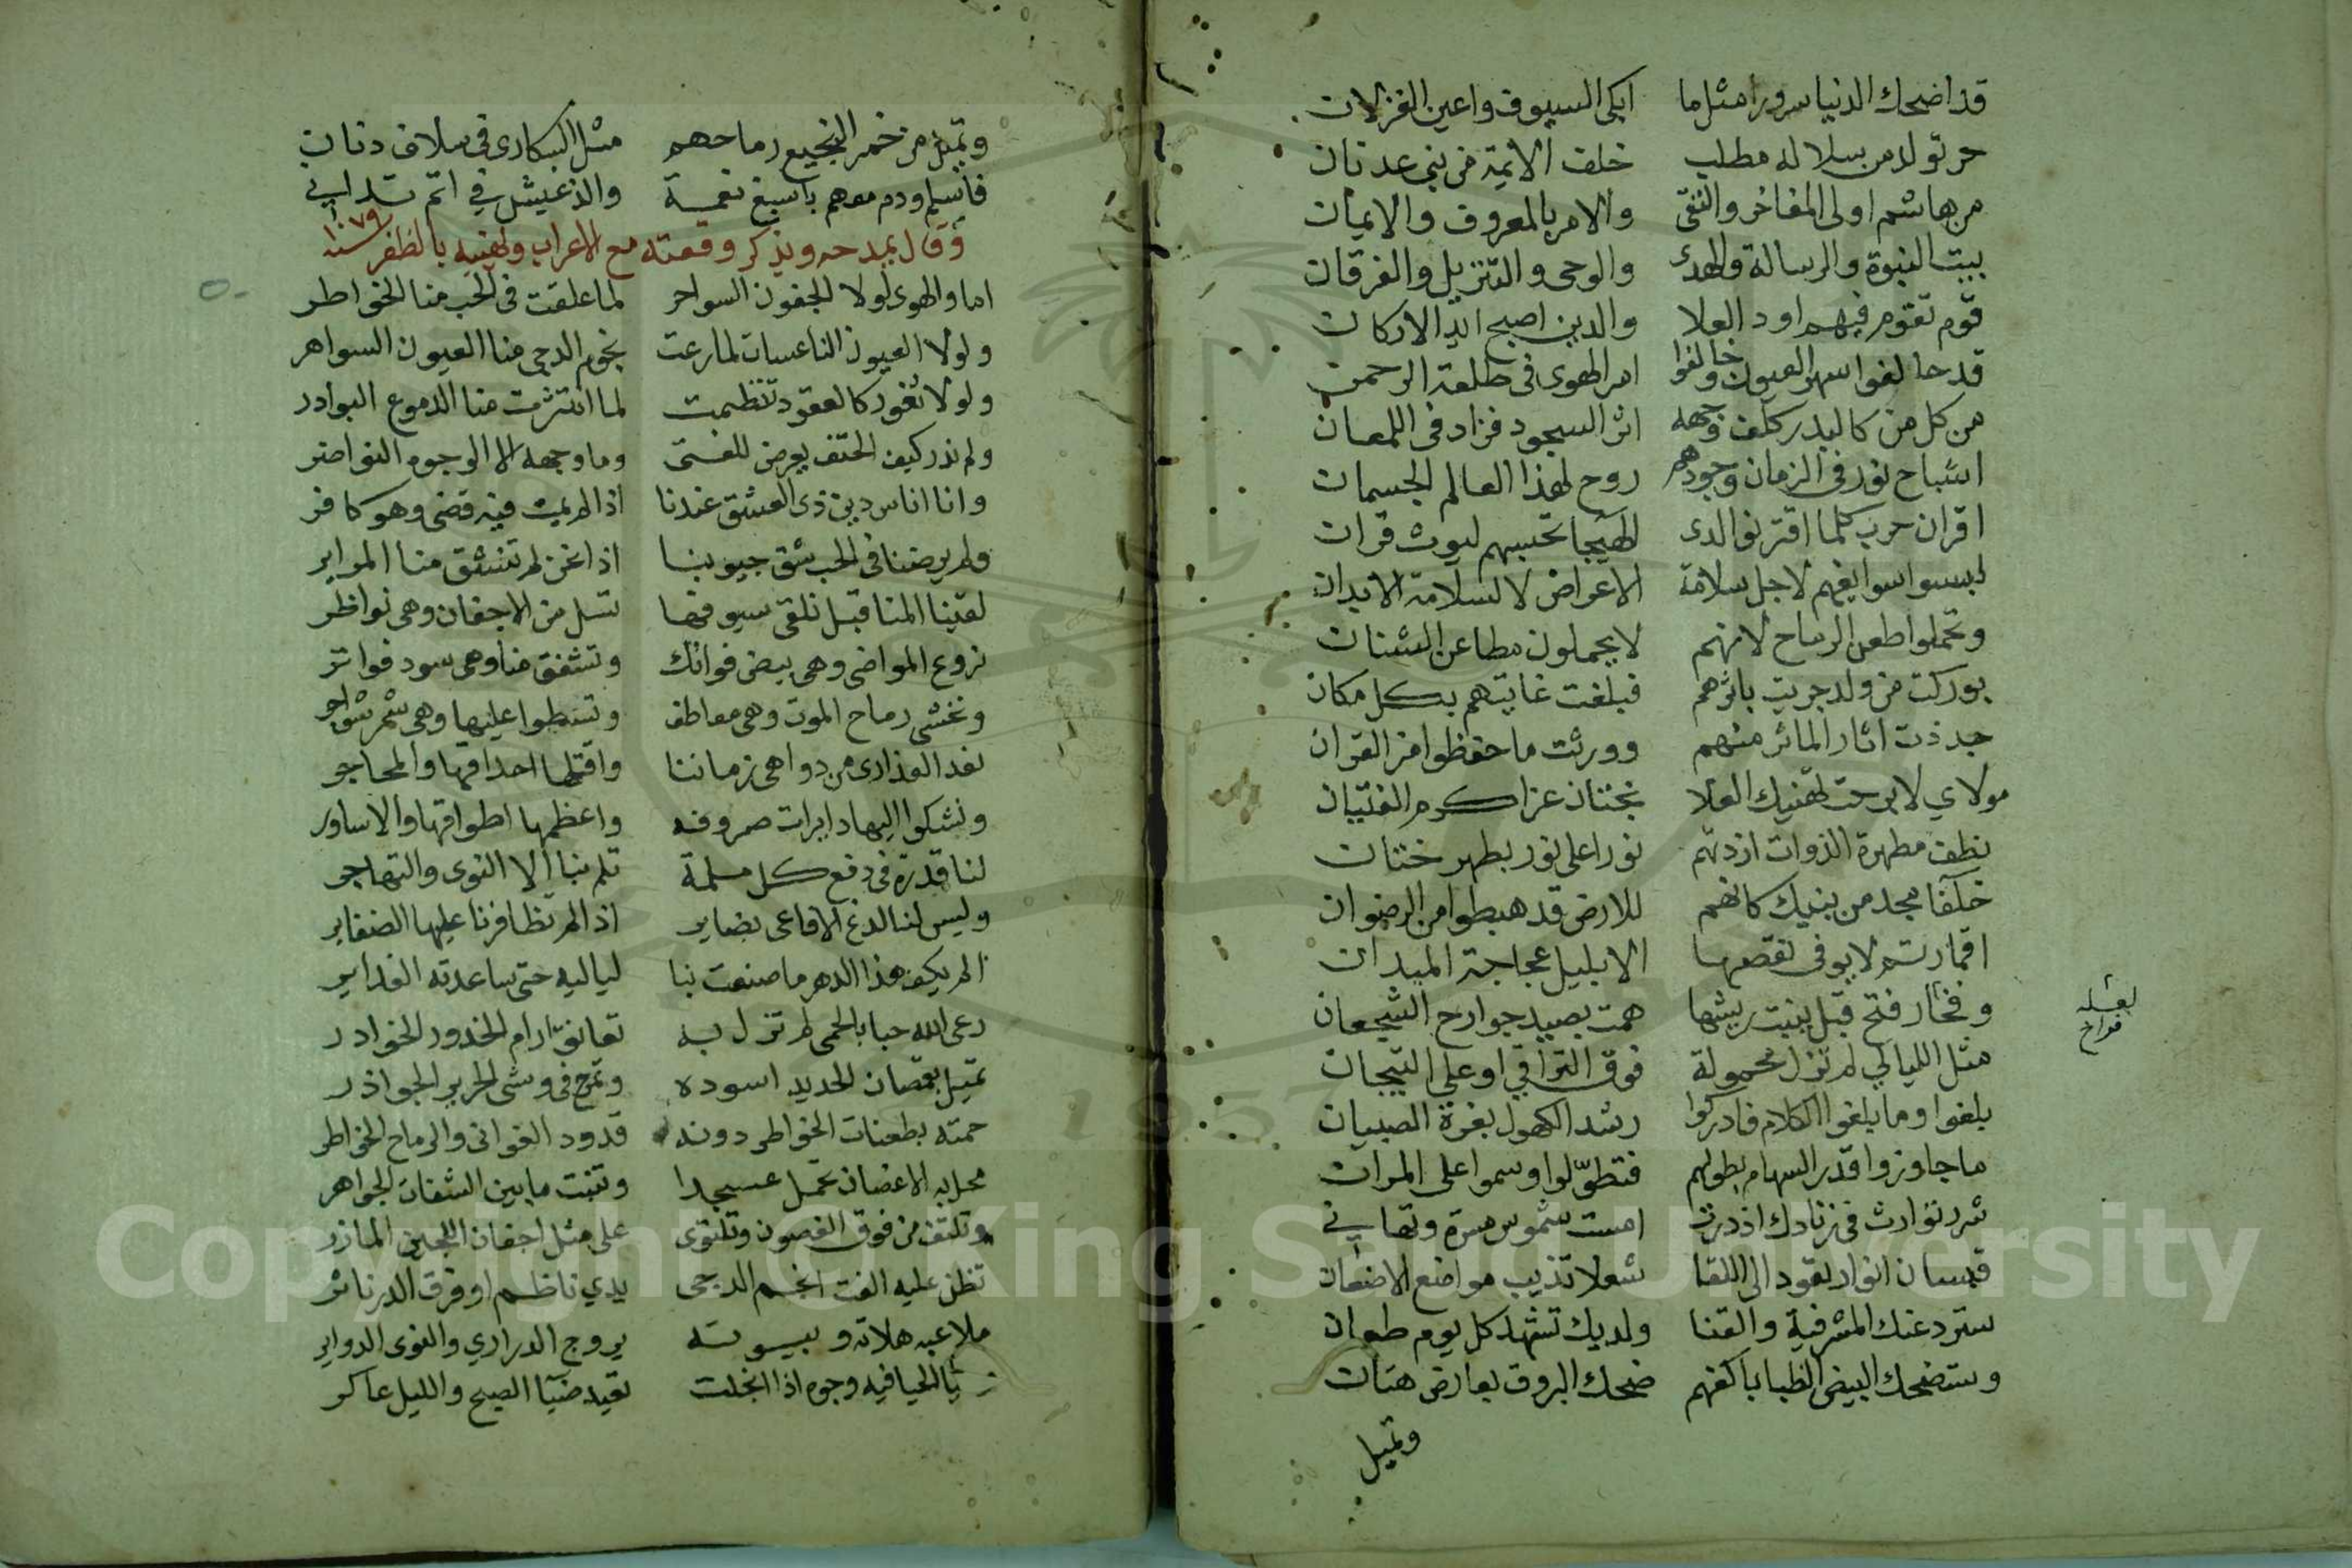 قد اضحك الدنيا سرورا مثل ما ابكى السيوف واعين الغزلان
حر تولد من سلالة مطلب خلف الايمة من بني عدنان
من هاشم اولى المفاخر والتقى والامر بالمعروف والايمان
بيت النبوة والرسالة والهدى والوحى والتنزيل والفرقان
قوم تقوم فيهم اود العلا والدين اصبح ايد الاركان
قد حالفوا سهر العيون وخالفوا امر الهوى فى طاعة الرحمن
من كل من كالبدر كلف وجهه اثر السجود فزاد فى اللمعان
اشباح نور فى الزمان وجودهم روح لهذا العالم الجسمان
اقران حرب كلما اقترنوا لدى الهيجا تحسبهم ليوث قران
لبسوا سوابغهم لاجل سلامة الاعراض لا لسلامة الابدان
وتحملوا طعن الرماح لانهم لا يحملون مطاعن الشنان
بوركت من ولد جريت باثرهم فبلغت غايتهم بكل مكان
جددت اثار الماثر منهم وورثت ما حفظوا من القران
مولاي لا برحت تهنيك العلا بختان عز اكرم الفتيان
نطف مطهرة الذوات ازدتهم نورا على نور بطهر ختان
خلفا مجد من بنيك كانهم للارض قد هبطوا من الرضوان
اقمار تم لا يوفى نقصها الا بليل عجاجة الميدان
وفخار فتح قبل ينبت ريشها همت بصيد جوارح الشجعان
لعله فراخ
مثل الليالي لم تزل محمولة فوق التراقي او على التيجان
بلغوا وما بلغوا الكلام فادركوا رشد الكهول بغرة الصبيان
ما جاوزوا قدر السهام بطولهم فتطولوا وسموا على المران
شرر توارث فى زنادك اذ درت امست شموس مسرة وتهاني
قبسان انوار تقود الى اللقا شعلا تذيب مواضع الاضغان
سترد عنك المشرفية والقنا ولديك تشهد كل يوم طعان
وستضحك البيض الظبا باكفهم ضحك البروق بعارض هتان
وتميل
وتميل من خمر النجيع رماحهم مثل السكارى فى سلاف دنان
فاسلم ودم معهم باسبغ نعمة والذ عيش في اتم تداني
وقال يمدحه ويذكر وقعته مع الاعراب ويهنيه بالظفر سنة ١٠٧٩
اما والهوى لولا الجفون السواحر لما علقت فى الحب منا الخواطر
ولولا العيون الناعسات لما رعت نجوم الدجى منا العيون السواهر
ولولا ثغور كالعقود تنظمت لما انتثرت منا الدموع البوادر
ولم ندر كيف الحتف يعرض للفتى وما وجهه الا الوجوه النواضر
وانا اناس دين ذى العشق عندنا اذا لم يمت فيه قضى وهو كافر
ولم يرضنا فى الحب شق جيوبنا اذا نحن لم تنشق منا المراير
لقينا المنا قبل نلقى سيوفها تسل من الاجفان وهى نواظر
نروع المواضى وهى بيض فواتك وتشفق منا وهى سود فواتر
ونخشى رماح الموت وهى معاطف وتسطوا عليها وهى سمر شواجر
نعد العذارى من دواهى زماننا واقتلها احداقها والمحاجر
ونشكوا اليها دايرات صروفه واعظمها اطواقها والاساور
لنا قدرة فى دفع كل ملمة تلم بنا الا النوى والتهاجر
وليس لنا لدغ الافاعى بضاير اذا لم تظافرنا عليها الضفاير
الم يكف هذا الدهر ما صنعت بنا لياليه حتى ساعدته الغداير
رعى الله حبا بالحمى لم تزل به تعانق ارام الخدور الخوادر
تميل بقمصان الحديد اسوده وتمرح فى وشى الحرير الجواذر
حمته بطعنات الخواطر دونه قدود الغوانى والرماح الخواطر
محل به الاغصان تحمل عسجدا وتنبت ما بين الشفاه الجواهر
وتلتف من فوق الغصون وتلتوى على مثل احقاف اللجين المازر
تظن عليه الفت انجم الدجى يدي ناظم او فرق الدر ناثر
ملاعبه هالاته وبيوته بروج الدراري والنوى الدواير
بالحيا فيه وجوه اذا انجلت تعيد ضيا الصبح والليل عاكر
Copyright © King Saud University
1957